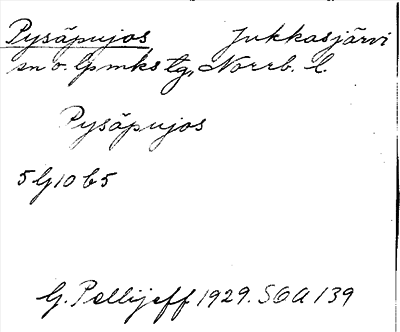 Pysäpujos Jukkasjärvi
sn o. lpmks tg, Norrb. l.
Pysäpujos
5 G 10 b 5
G. Pellijeff 1929. SOA 139